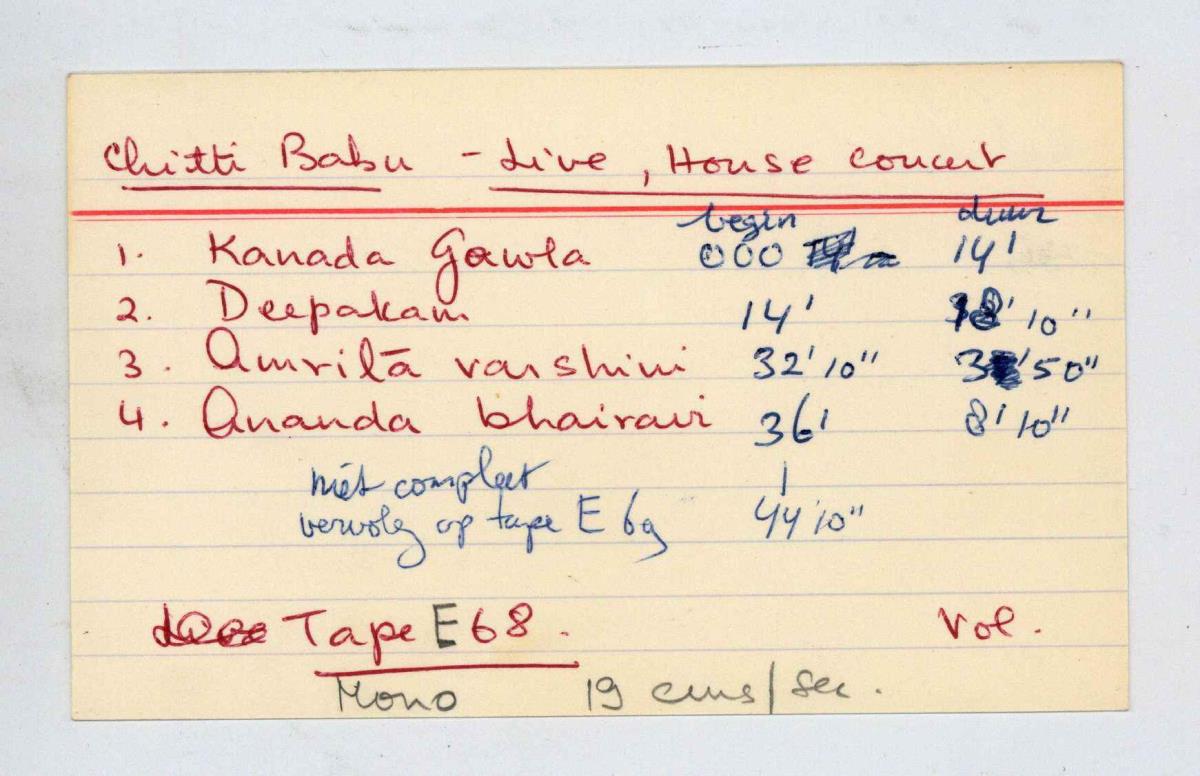 Chitti Babu - Live, House concert
begin duur
1. Kanada Gawla 000 14'
2. Deepakam 14' 18' 10"
3. Amritā varshini 32' 10" 3' 50"
4. Ananda bhairavi 36' 8' 10"
niet compleet
vervolg op tape E 69 44' 10"
Tape E68. Vol.
Mono 19 cms/sec.